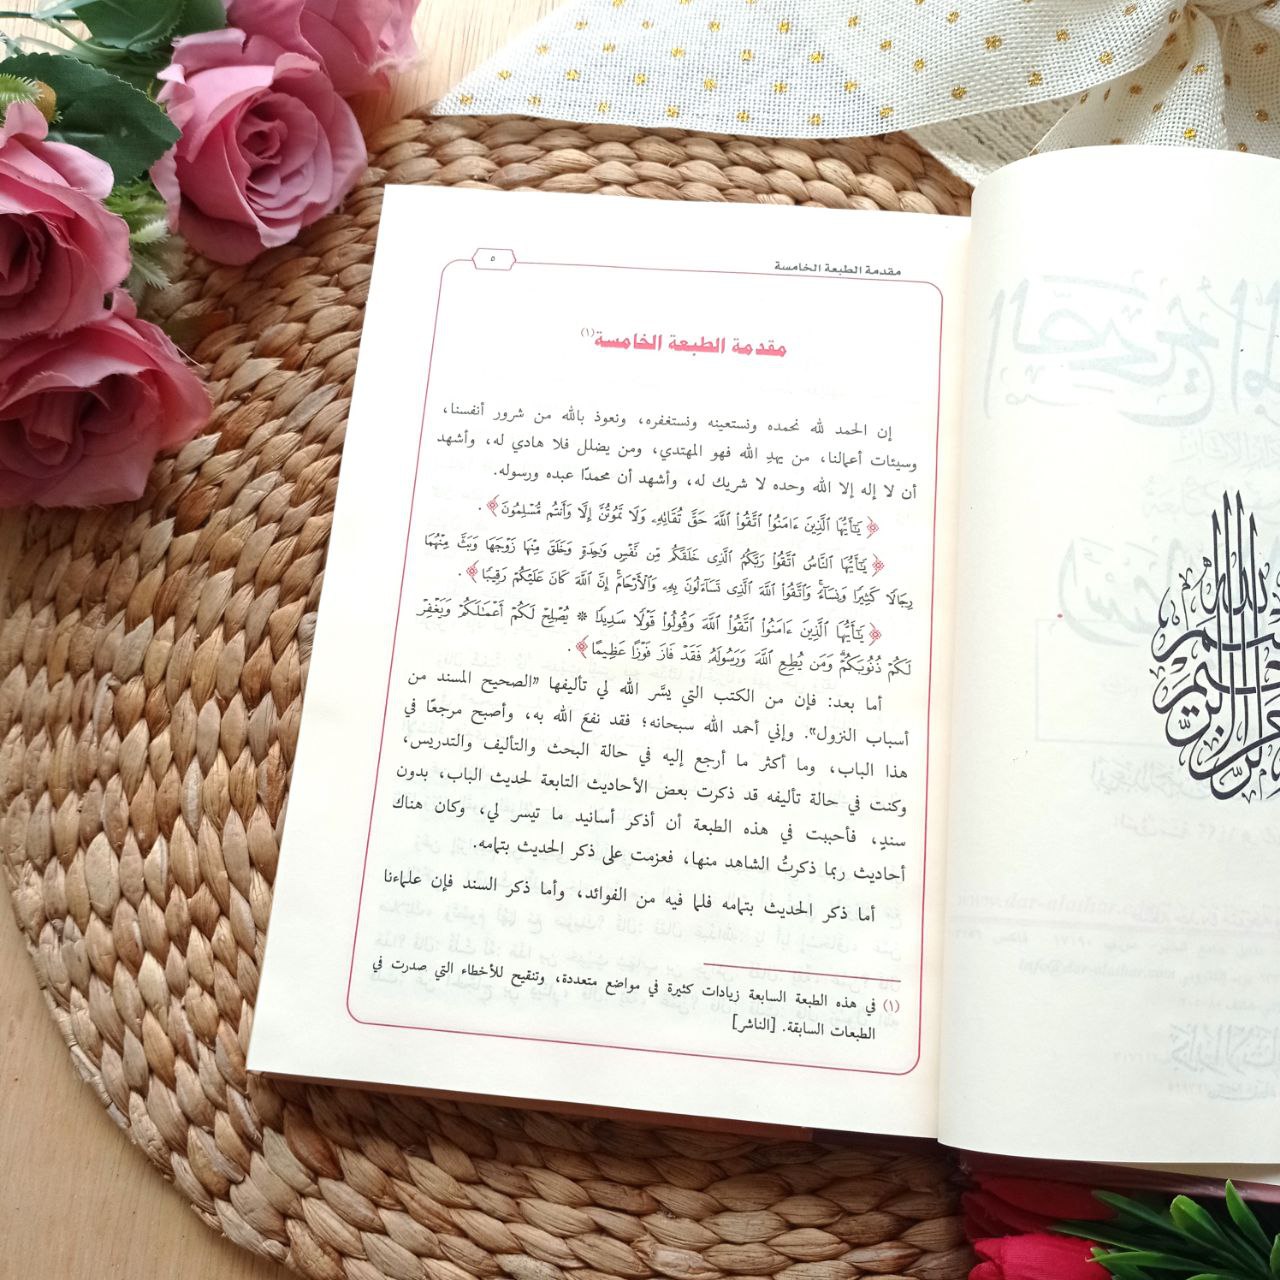 مقدمة الطبعة الخامسة
٥
مقدمة الطبعة الخامسة(١)
إن الحمد لله نحمده ونستعينه ونستغفره، ونعوذ بالله من شرور أنفسنا،
وسيئات أعمالنا، من يهدِ الله فهو المهتدي، ومن يضلل فلا هادي له، وأشهد
أن لا إله إلا الله وحده لا شريك له، وأشهد أن محمدًا عبده ورسوله.
﴿يَٰٓأَيُّهَا ٱلَّذِينَ ءَامَنُوا۟ ٱتَّقُوا۟ ٱللَّهَ حَقَّ تُقَاتِهِۦ وَلَا تَمُوتُنَّ إِلَّا وَأَنتُم مُّسْلِمُونَ﴾.
﴿يَٰٓأَيُّهَا ٱلنَّاسُ ٱتَّقُوا۟ رَبَّكُمُ ٱلَّذِى خَلَقَكُم مِّن نَّفْسٍ وَٰحِدَةٍ وَخَلَقَ مِنْهَا زَوْجَهَا وَبَثَّ مِنْهُمَا
رِجَالًا كَثِيرًا وَنِسَآءً ۚ وَٱتَّقُوا۟ ٱللَّهَ ٱلَّذِى تَسَآءَلُونَ بِهِۦ وَٱلْأَرْحَامَ ۚ إِنَّ ٱللَّهَ كَانَ عَلَيْكُمْ رَقِيبًا﴾.
﴿يَٰٓأَيُّهَا ٱلَّذِينَ ءَامَنُوا۟ ٱتَّقُوا۟ ٱللَّهَ وَقُولُوا۟ قَوْلًا سَدِيدًا * يُصْلِحْ لَكُمْ أَعْمَٰلَكُمْ وَيَغْفِرْ
لَكُمْ ذُنُوبَكُمْ ۗ وَمَن يُطِعِ ٱللَّهَ وَرَسُولَهُۥ فَقَدْ فَازَ فَوْزًا عَظِيمًا﴾.
أما بعد: فإن من الكتب التي يسَّر الله لي تأليفها «الصحيح المسند من
أسباب النزول». وإني أحمد الله سبحانه؛ فقد نفعَ الله به، وأصبح مرجعًا في
هذا الباب، وما أكثر ما أرجع إليه في حالة البحث والتأليف والتدريس،
وكنت في حالة تأليفه قد ذكرت بعض الأحاديث التابعة لحديث الباب، بدون
سندٍ، فأحببت في هذه الطبعة أن أذكر أسانيد ما تيسر لي، وكان هناك
أحاديث ربما ذكرتُ الشاهد منها، فعزمت على ذكر الحديث بتمامه.
أما ذكر الحديث بتمامه فلما فيه من الفوائد، وأما ذكر السند فإن علماءنا
(١) في هذه الطبعة السابعة زيادات كثيرة في مواضع متعددة، وتنقيح للأخطاء التي صدرت في
الطبعات السابقة. [الناشر]